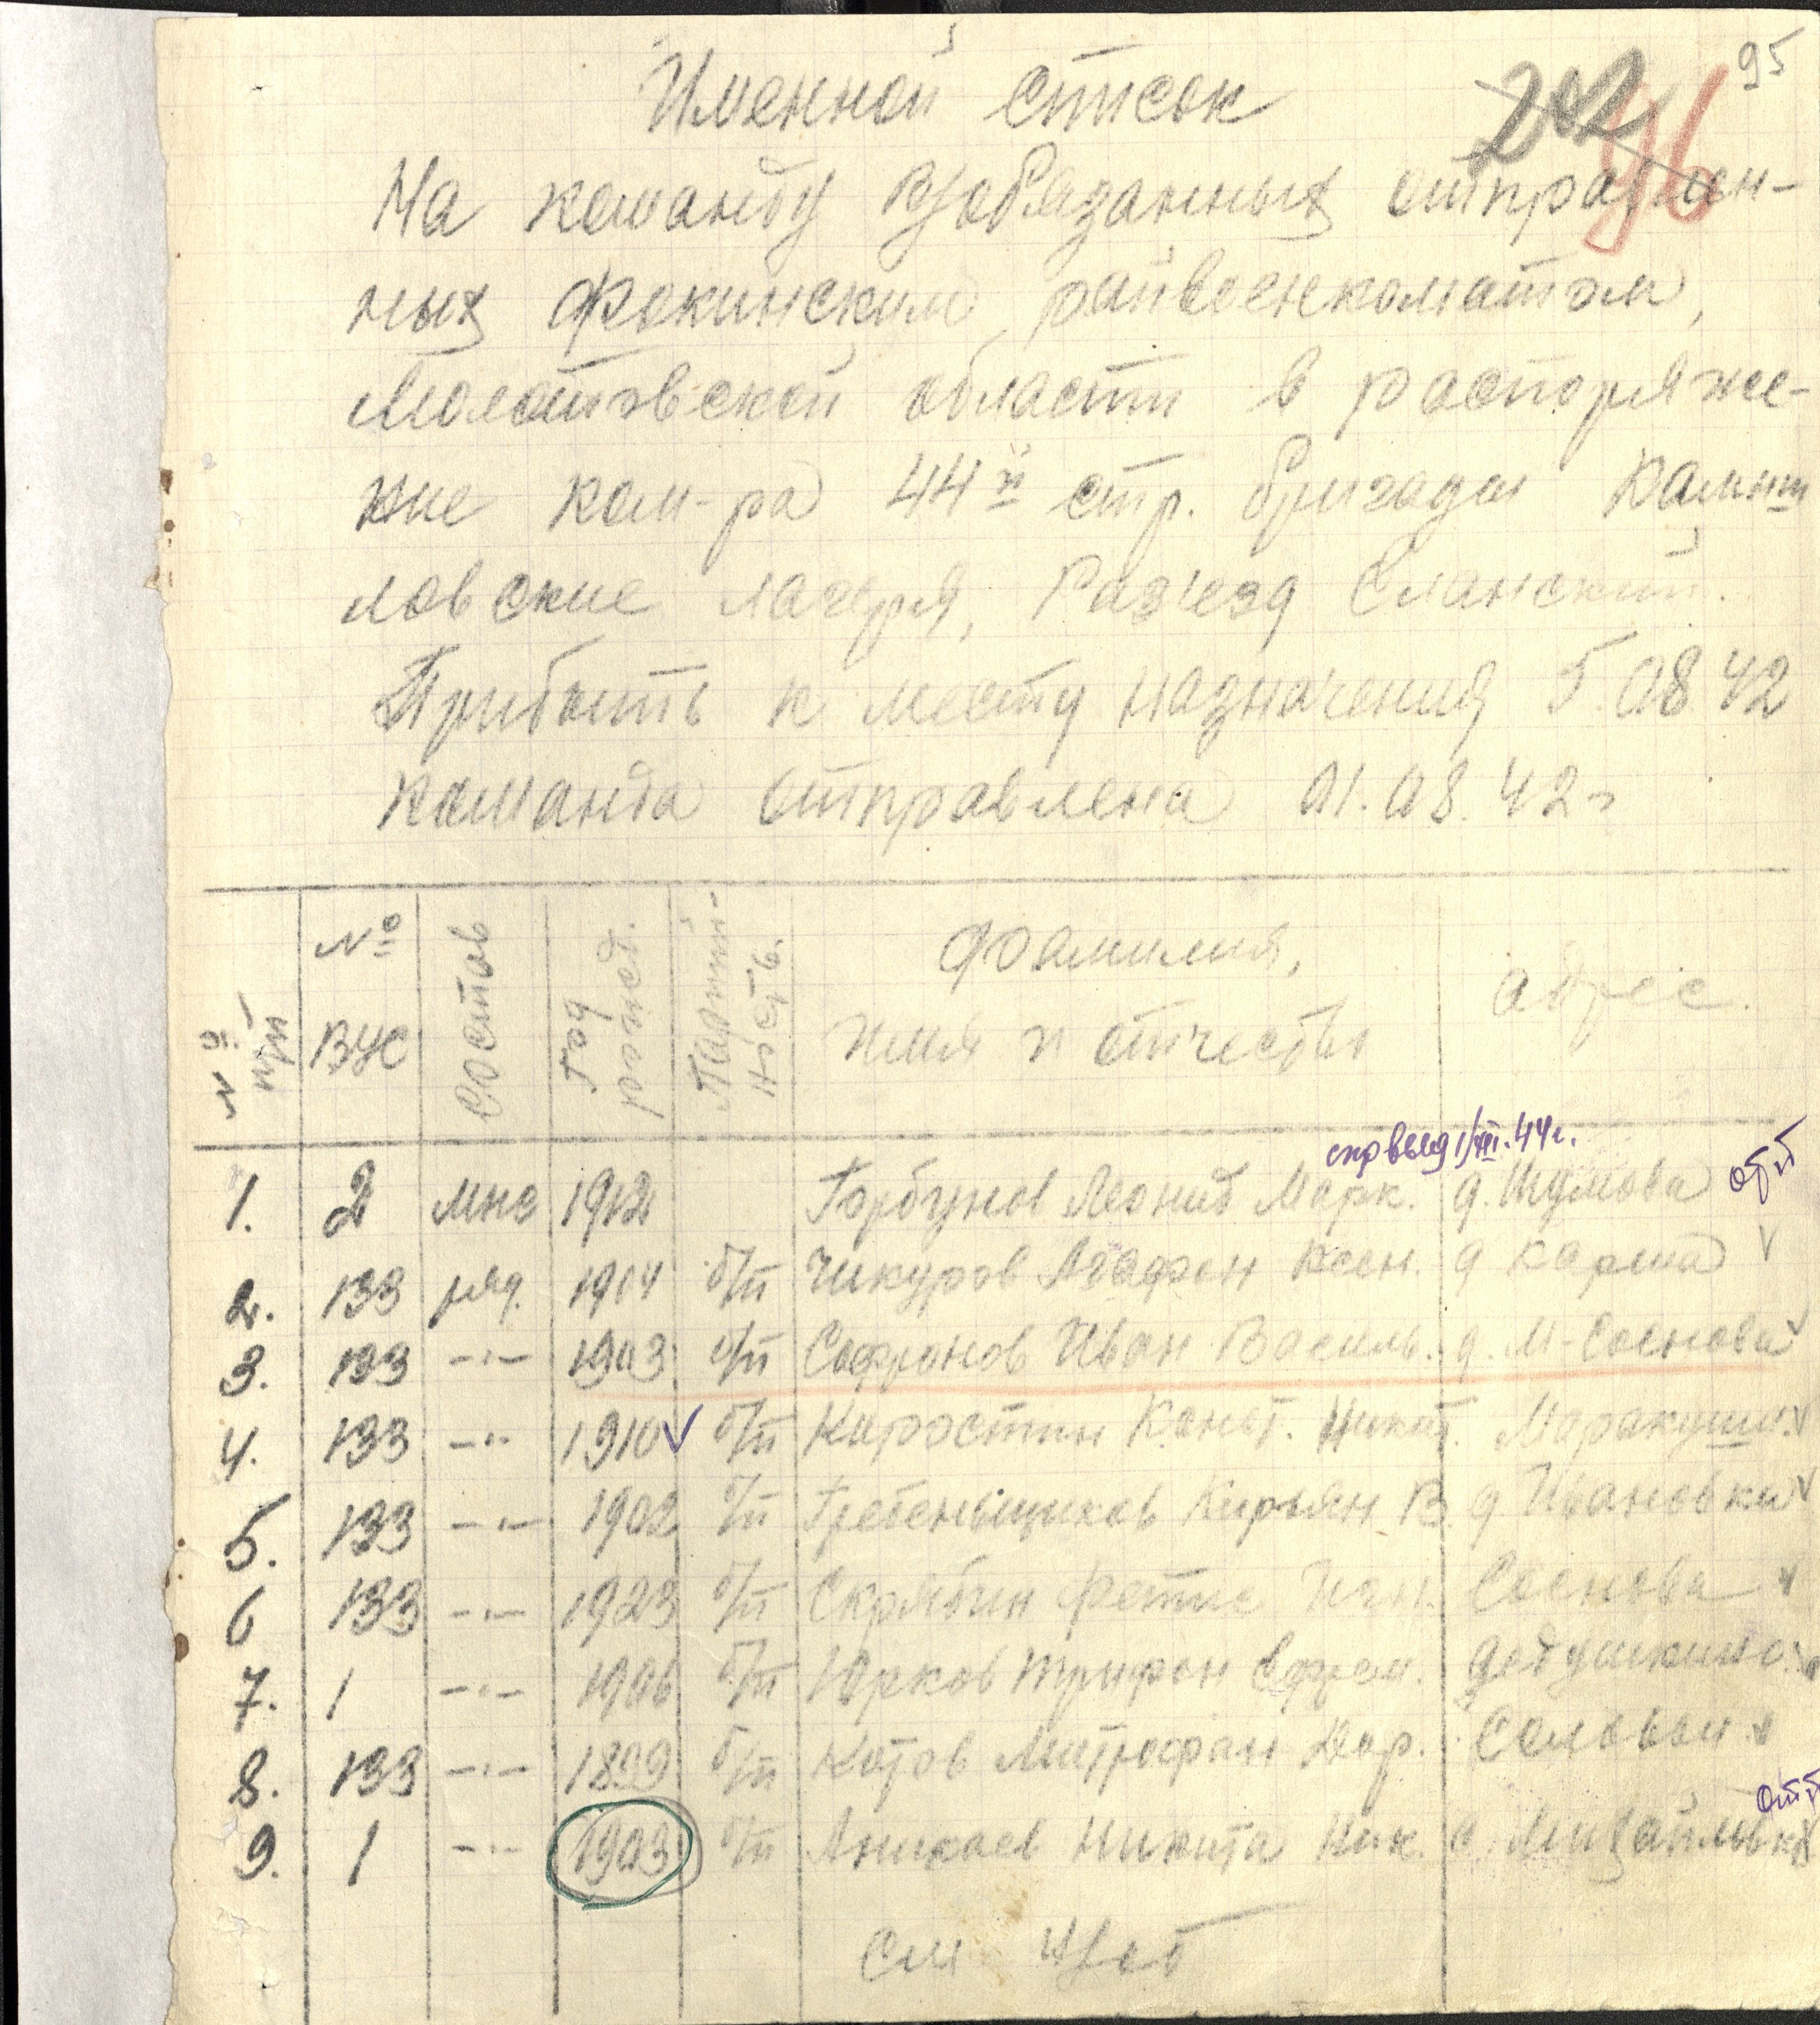 95
202
96
Именной список
На команду в/обязанных отправлен-
ных Фокинским райвоенкоматом,
Молотовской области в распоряже-
ние ком-ра 44й стр. бригады Камыш
ловские лагеря, Раз'езд Еланский.
Прибыть к месту назначения 5.08.42
Команда отправлена 01.08.42 г
№ № п/п
№ ВУС
Состав
Год рожд.
Партий-ность.
Фамилия, имя и отчество
Адрес.
спр выд 1/VII.44 г.
1. 2 мнс 1912 Горбунов Леонид Марк. д. Шумова
2. 133 ряд. 1904 б/п Чикуров Агафон Ксен. д Карша
3. 133 -"- 1903 б/п Софронов Иван Василь. д. М-Соснова
4. 133 -"- 1910 б/п Коростин Конст. Никит. Маракуши
5. 133 -"- 1902 б/п Гребеньщиков Кирьян В. д. Ивановка
6 133 -"- 1923 б/п Скрябин Фетис Соснова
7. 1 -"- 1906 б/п Юрков Трифон Ефрем. Дедушкино
8. 133 -"- 1899 б/п Котов Митрофан Дор. Соловьи
9. 1 -"- 1903 б/п Аникаев Никита Ник. Михайловка
см